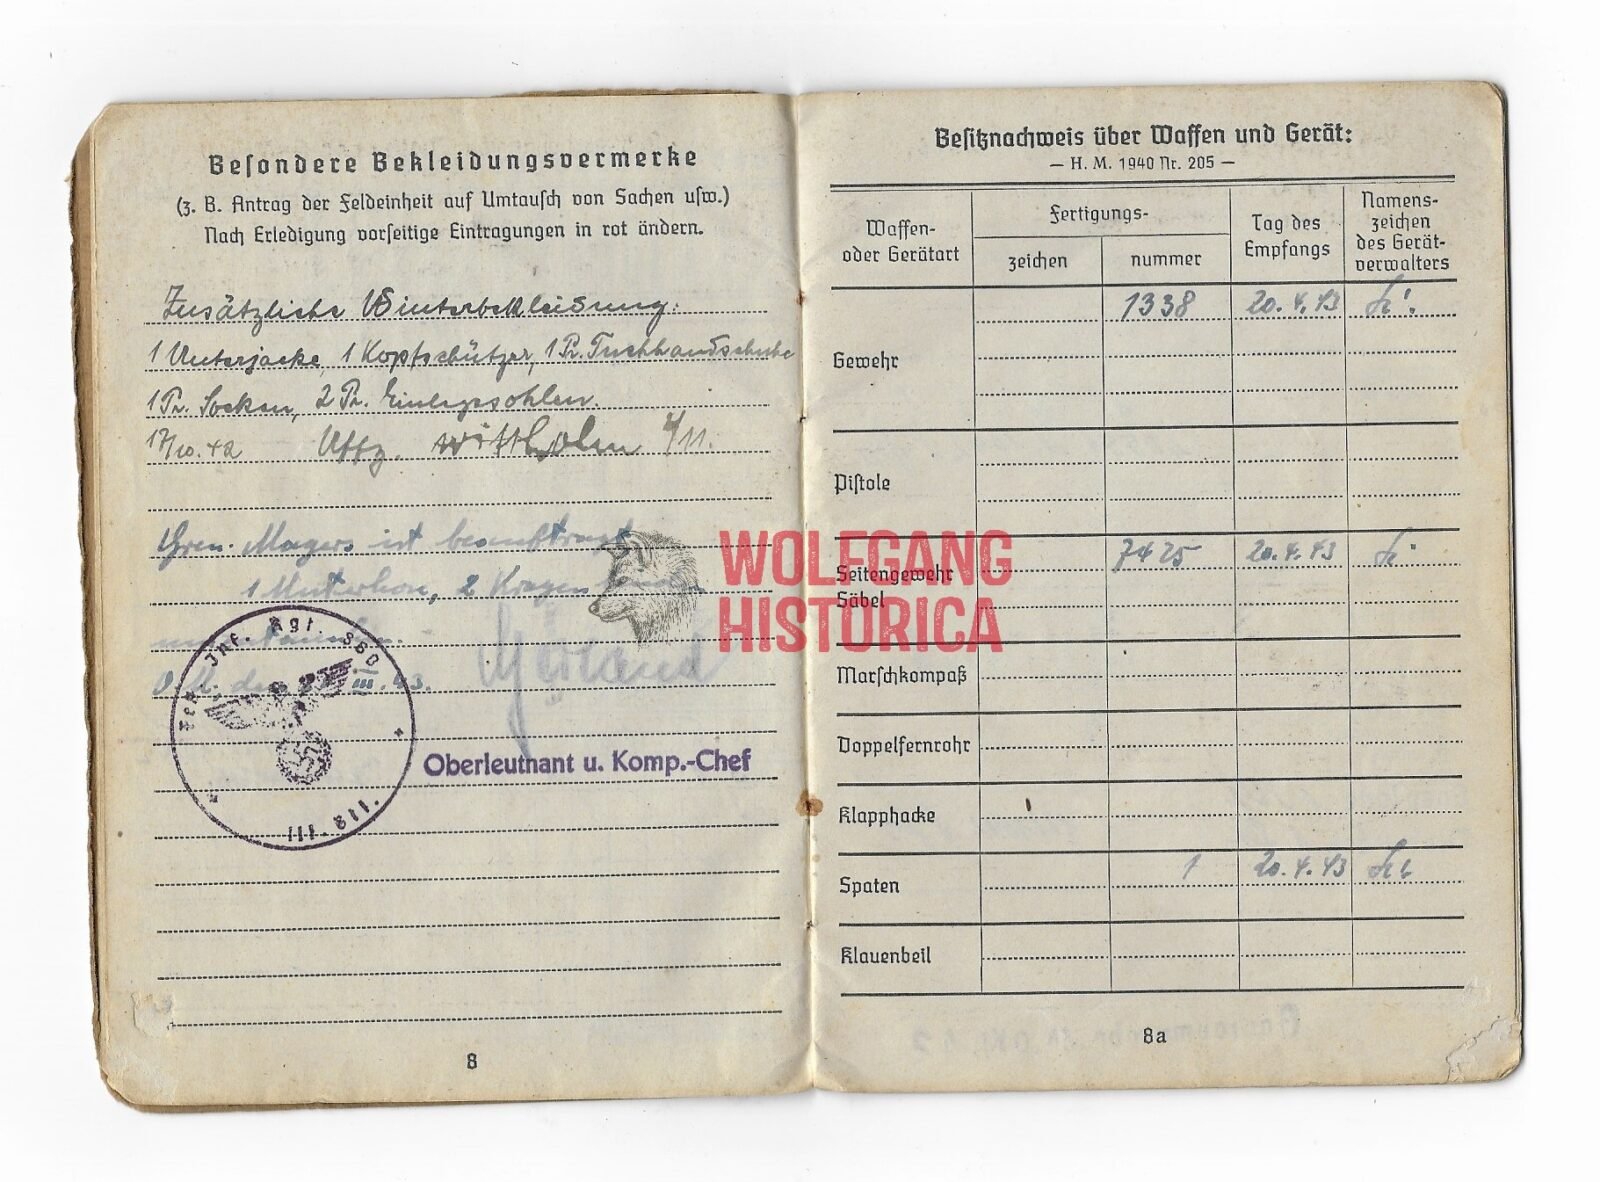 Besondere Bekleidungsvermerke
(z. B. Antrag der Feldeinheit auf Umtausch von Sachen usw.)
Nach Erledigung vorseitige Eintragungen in rot ändern.
Zusätzliche Winterbekleidung:
1 Unterjacke, 1 Kopfschützer, 1 Pr. Tuchhandschuhe
1 Pr. Socken, 2 Pr. Einlegesohlen.
17/10.42 Uffz. 4/11.
Gren. ist beauftragt
1 Unterhose, 2 Kragen
III.43.
Inf. Rgt. 360
Oberleutnant u. Komp.-Chef
8
WOLFGANG
HISTORICA
Besitznachweis über Waffen und Gerät:
— H. M. 1940 Nr. 205 —
Waffen- oder Gerätart
Fertigungs-
zeichen nummer
Tag des Empfangs
Namens- zeichen des Gerät- verwalters
Gewehr 1338 20.4.43
Pistole
Seitengewehr 7425 20.4.43
Säbel
Marschkompaß
Doppelfernrohr
Klapphacke
Spaten 1 20.4.43
Klauenbeil
8a